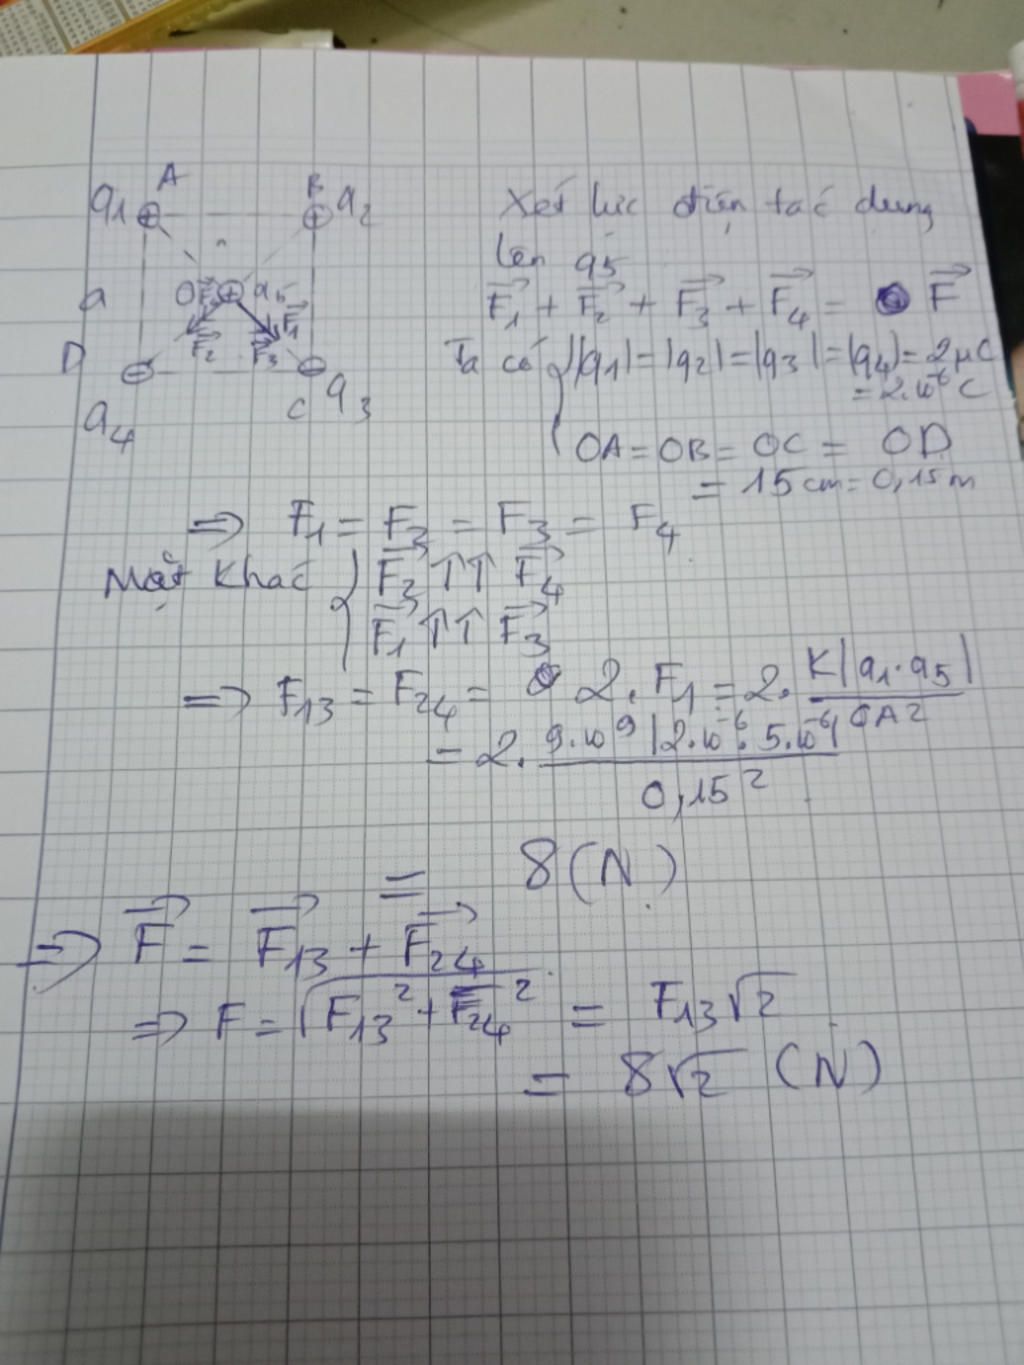 A
B
q1 ⊕
⊕ q2
a
O
q5
F1
F2
F3
D
⊖
⊖
C
q3
q4
Xét lực điện tác dụng
lên q5
F1 + F2 + F3 + F4 = F
Ta có |q1| = |q2| = |q3| = |q4| = 2μC
= 2.10^-6 C
OA = OB = OC = OD
= 15cm = 0,15m
=> F1 = F3 = F3 = F4
Mặt khác { F2 ↑↑ F4
F1 ↑↑ F3
=> F13 = F24 = 2. F1 = 2. K|q1.q5| / OA2
= 2. 9.10^9 |2.10^-6. 5.10^-6| / 0,15^2
= 8 (N)
=> F = F13 + F24
=> F = √(F13^2 + F24^2) = F13√2
= 8√2 (N)